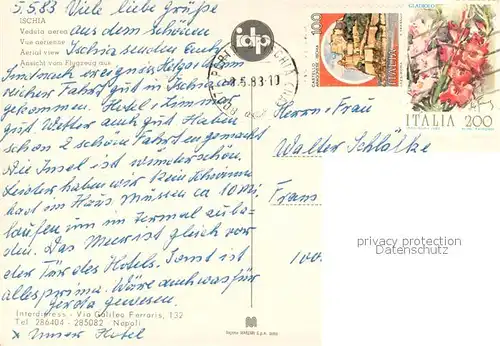 5.5.83 Viele liebe Grüße
ISCHIA
Veduta aerea
Vue aérienne
Aerial view
Ansicht vom Flugzeug aus
aus dem schönen
Ischia senden Euch
reicher Fahrt gut in Ischia an-
gekommen. Hotel + Zimmer
gut. Wetter auch gut. Haben
schon 2 schöne Fahrten gemacht
Die Insel ist wunderschön.
Leider haben wir kein Schwimm-
bad im Haus müssen ca 10 Min
laufen um im Termal zu ba-
den. Das Meer ist gleich vor
der Tür des Hotels. Sonst ist
alles prima. Wäre auch was für
Gerda gewesen.
Interdipress - Via Galileo Ferraris, 132
Tel 286404 - 285082 Napoli
x Unser Hotel
idp
8.5.83-10
100
ITALIA
GLADIOLO
ITALIA 200
Herrn + Frau
Walter Schlätke
privacy protection
Datenschutz